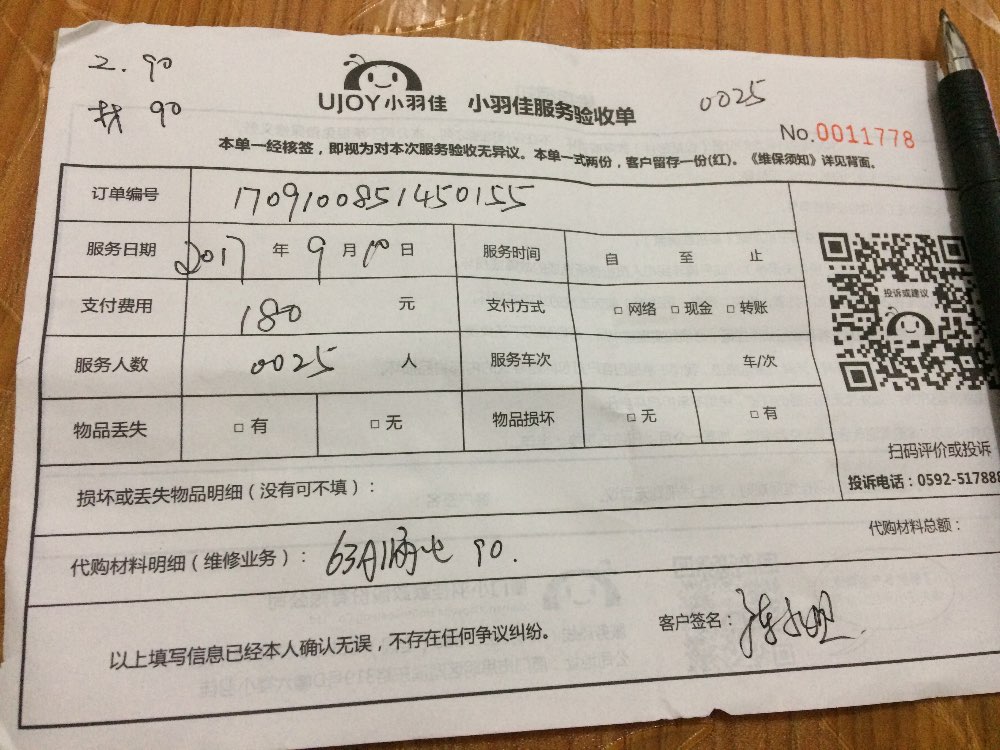 2. 90
找 90
UJOY小羽佳 小羽佳服务验收单
0025
No.0011778
本单一经核签，即视为对本次服务验收无异议。本单一式两份，客户留存一份(红)。《维保须知》详见背面。
订单编号 1709100851450155
服务日期 2017 年 9 月 10 日 服务时间 自 至 止
支付费用 180 元 支付方式 □ 网络 □ 现金 □ 转账
服务人数 0025 人 服务车次 车/次
物品丢失 □ 有 □ 无 物品损坏 □ 无 □ 有
投诉或建议
扫码评价或投诉
投诉电话：0592-517888
损坏或丢失物品明细（没有可不填）：
代购材料总额：
代购材料明细（维修业务）： 63A 90.
以上填写信息已经本人确认无误，不存在任何争议纠纷。
客户签名：